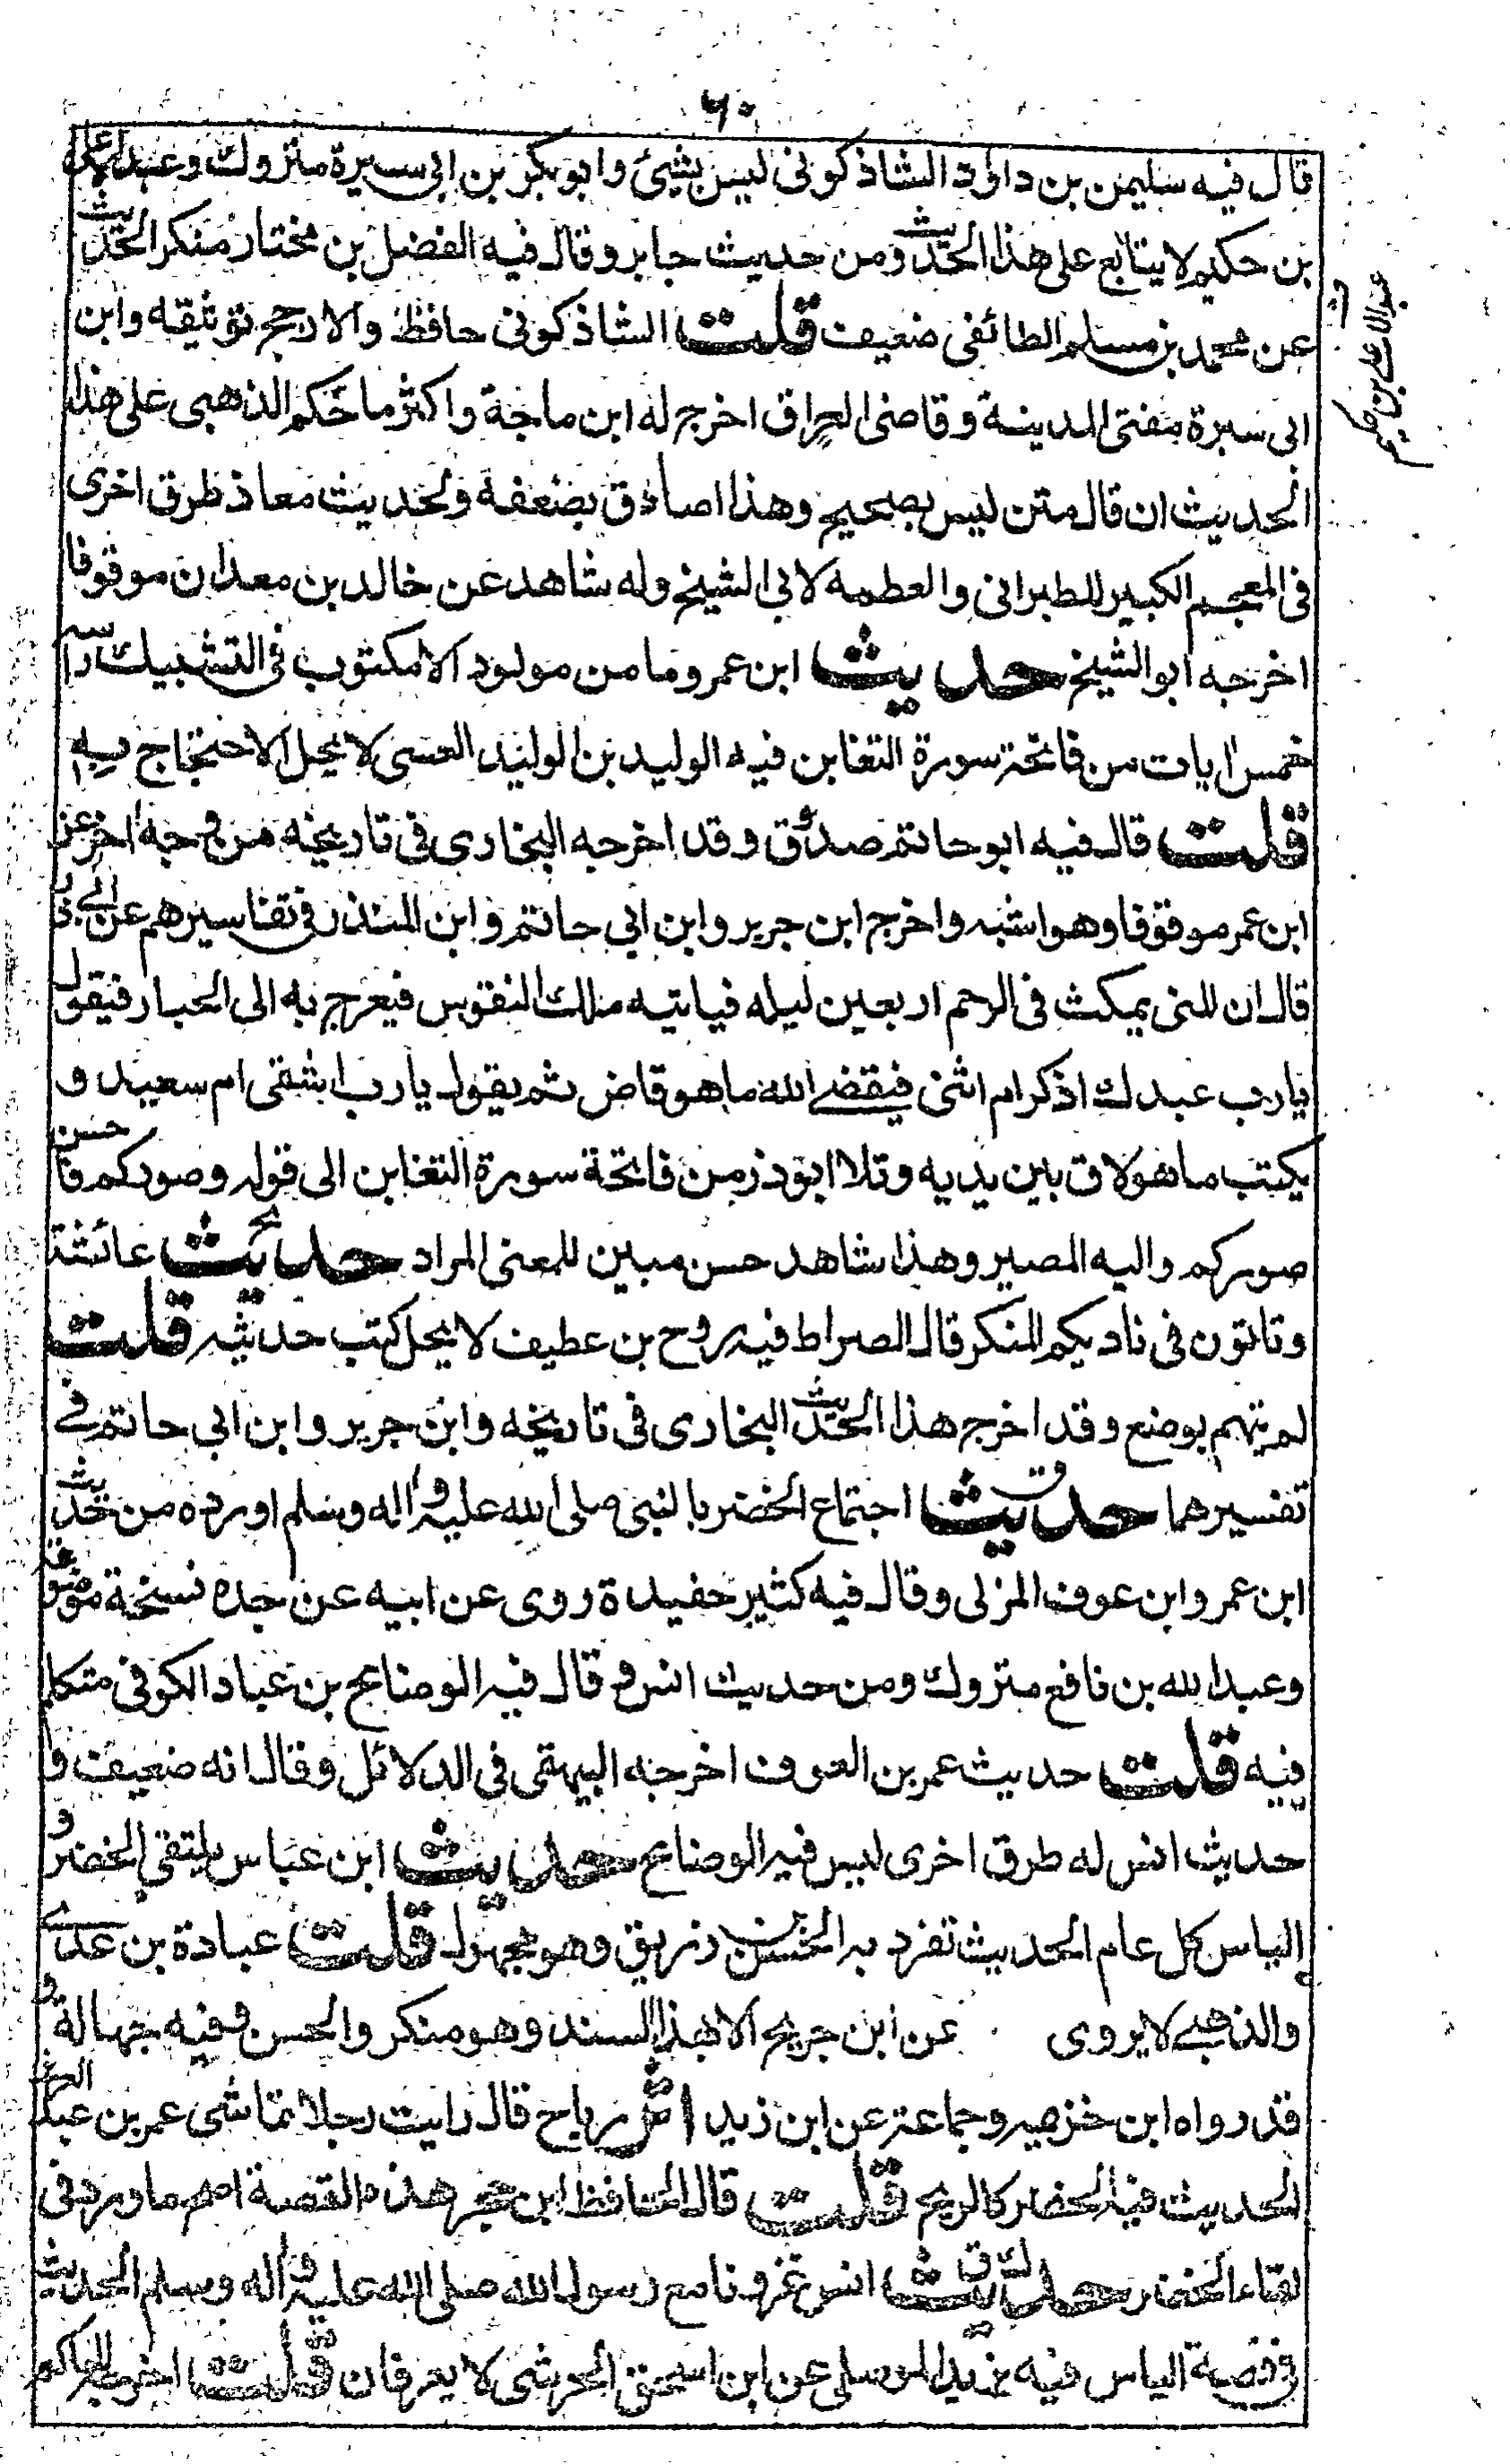 ٦٠
قال فيه سليمن بن داؤد الشاذكونى ليس بشيئ وابوبكر بن ابى سبرة متروك وعبد الاعلى
بن حكيم لا يتابع على هذا الحديث ومن حديث جابر وقال فيه الفضل بن مختار منكر الحديث
عن محمد بن مسلم الطائفى ضعيف قلت الشاذكونى حافظ والارجح توثيقه وابن
ابى سبرة مفتى المدينة وقاضى العراق اخرج له ابن ماجة واكثر ما حكم الذهبى على هذا
الحديث ان قال متن ليس بصحيح وهذا صادق بضعفه ولحديث معاذ طرق اخرى
فى المعجم الكبير للطبرانى والعظمه لابى الشيخ وله شاهد عن خالد بن معدان موقوفا
اخرجه ابو الشيخ حديث ابن عمر وما من مولود الا مكتوب فى التشبيك راسه
خمس ايات من فاتحة سورة التغابن فيه الوليد بن الوليد العنسى لا يحل الاحتجاج به
قلت قال فيه ابو حاتم صدوق وقد اخرجه البخارى فى تاريخه من وجه اخر عن
ابن عمر موقوفا وهو اشبه واخرج ابن جرير وابن ابي حاتم وابن المنذر فى تفاسيرهم عن ابي ذر
قال ان المنى يمكث فى الرحم اربعين ليله فياتيه ملك النفوس فيعرج به الى الجبار فيقول
يارب عبدك اذكر ام انثى فيقضے الله ما هو قاض ثم يقول يارب اشقى ام سعيد و
يكتب ما هو لاق بين يديه وتلا ابو ذر من فاتحة سورة التغابن الى قوله وصوركم فاحسن
صوركم واليه المصير وهذا شاهد حسن مبين للمعنى المراد حديث عائشة
وتاتون فى ناديكم المنكر قال الصراط فيه روح بن عطيف لا يحل كتب حديثه قلت
لم يتهم بوضع وقد اخرج هذا الحديث البخارى فى تاريخه وابن جرير وابن ابي حاتم فے
تفسيرهما حديث اجتماع الخضر بالنبى صلى الله عليه واله وسلم اورده من حديث
ابن عمر وابن عوف المزلى وقال فيه كثير حفيدة روى عن ابيه عن جده نسخة موضوعة
وعبد الله بن نافع متروك ومن حديث انس وقال فيه الوضاح بن عباد الكوفى متكلم
فيه قلت حديث عمر بن العوف اخرجه البيهقى فى الدلائل وقال انه ضعيف و
حديث انس له طرق اخرى ليس فيه الوضاح حديث ابن عباس يلتقي الخضر و
الياس كل عام الحديث تفرد به الحسن بن زريق وهو مجهول قلت عبادة بن عدے
والذهبے لا يروى عن ابن جريج الا بهذا السند وهو منكر والحسن فيه جهالة و
قد رواه ابن خزيمه وجماعة عن ابن زيد اثر رباح قال رايت رجلا تماشى عمر بن عبد العزيز
الحديث فيه الخضر كالريح قلت قال الحافظ ابن حجر هذه القصة اصح ما ورد فى
لقاء الخضر حديث انس غزونا مع رسول الله صلى الله عليه واله وسلم الحديث
فى قصة الياس فيه يزيد الموصلى عن ابن اسحق الجرشى لا يعرفان قلت اخرجه الحاكم
عبد الاعلى بن حكيم